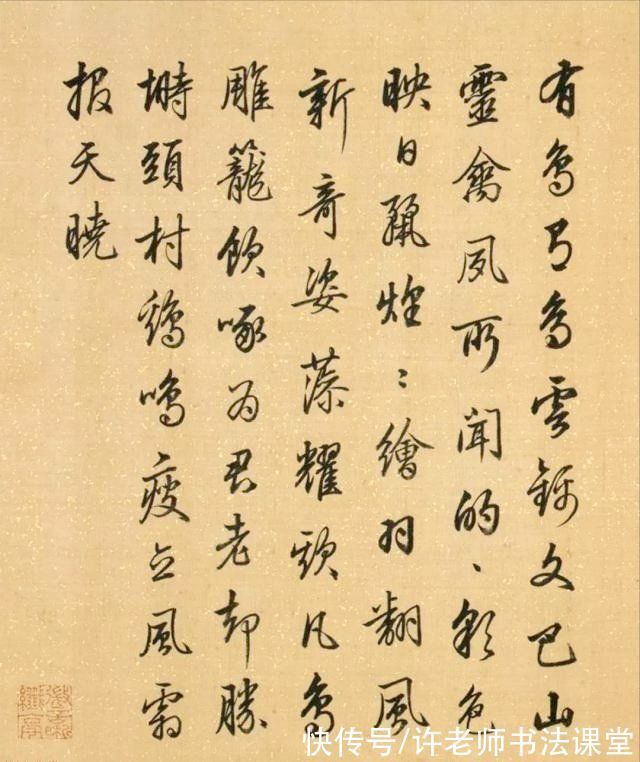 有鳥有鳥雲錦文巴山
靈禽夙所聞的〻彩色
映日煌〻繪羽翻風
新奇姿藻耀凡鳥
雕籠飲啄為君老却勝
塒頭村鷄鳴瘦立風霜
報天曉
快传号/许老师书法课堂